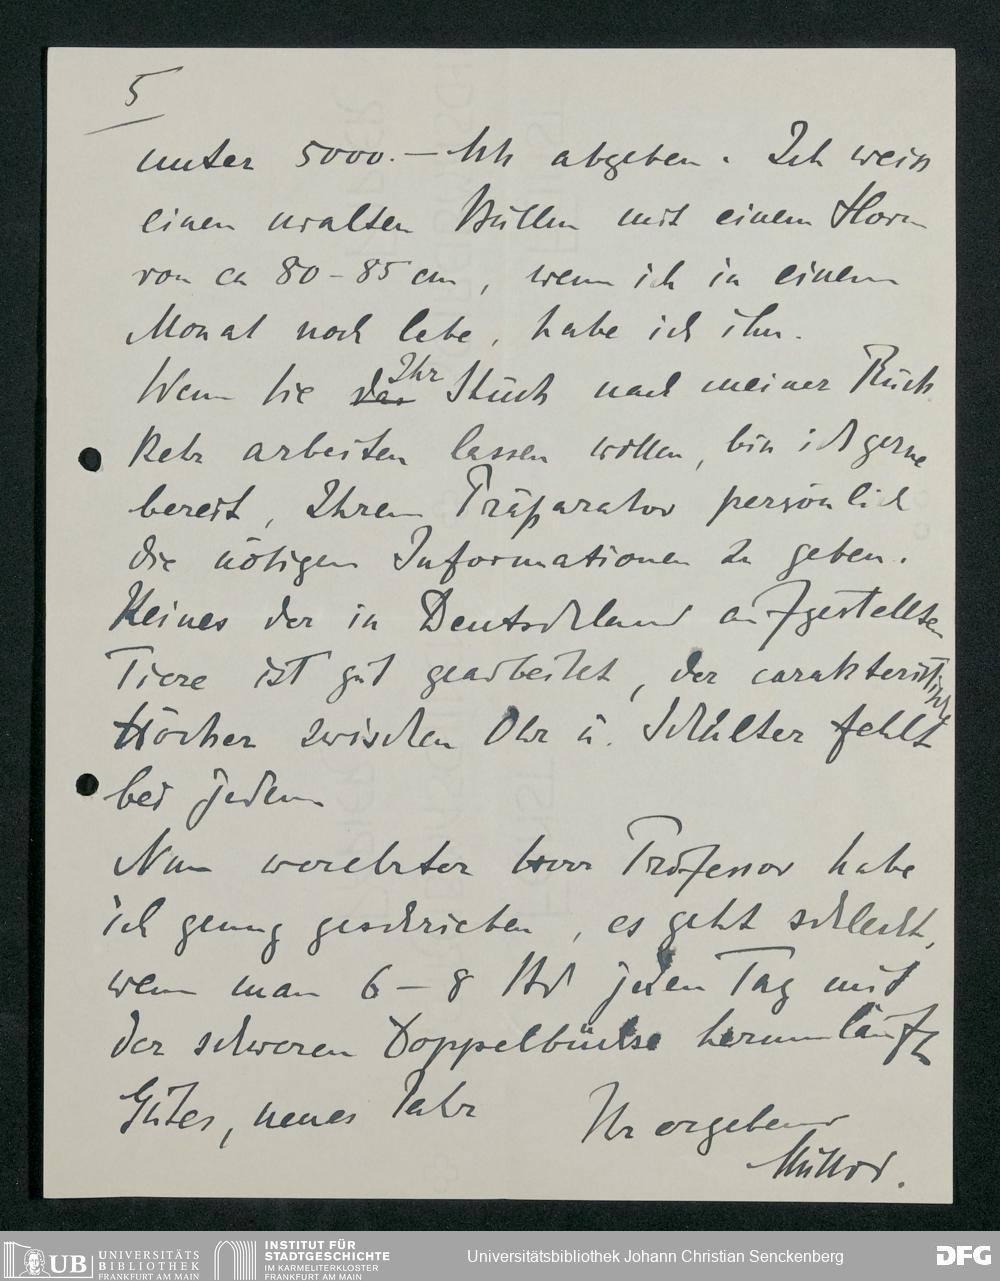 5
unter 5000.— Mk abgeben. Ich weiss
einen uralten Bullen mit einem Horn
von ca 80-85 cm, wenn ich in einem
Monat noch lebe, habe ich ihn.
Wenn Sie das Ihr Stück nach meiner Rück
kehr arbeiten lassen wollen, bin ich gerne
bereit, Ihrem Präparator persönlich
die nötigen Informationen zu geben.
Keines der in Deutschland aufgestellten
Tiere ist gut gearbeitet, der carakteristische
Höcker zwischen Ohr u. Schulter fehlt
bei jedem
Nun verehrter Herr Professor habe
ich genug geschrieben, es geht schlecht,
wenn man 6-8 Std jeden Tag mit
der schweren Doppelbüchse herumläuft
Gutes, neues Jahr
Ihr ergebener
Müller.
UB UNIVERSITÄTS
BIBLIOTHEK
FRANKFURT AM MAIN
INSTITUT FÜR
STADTGESCHICHTE
IM KARMELITERKLOSTER
FRANKFURT AM MAIN
Universitätsbibliothek Johann Christian Senckenberg
DFG